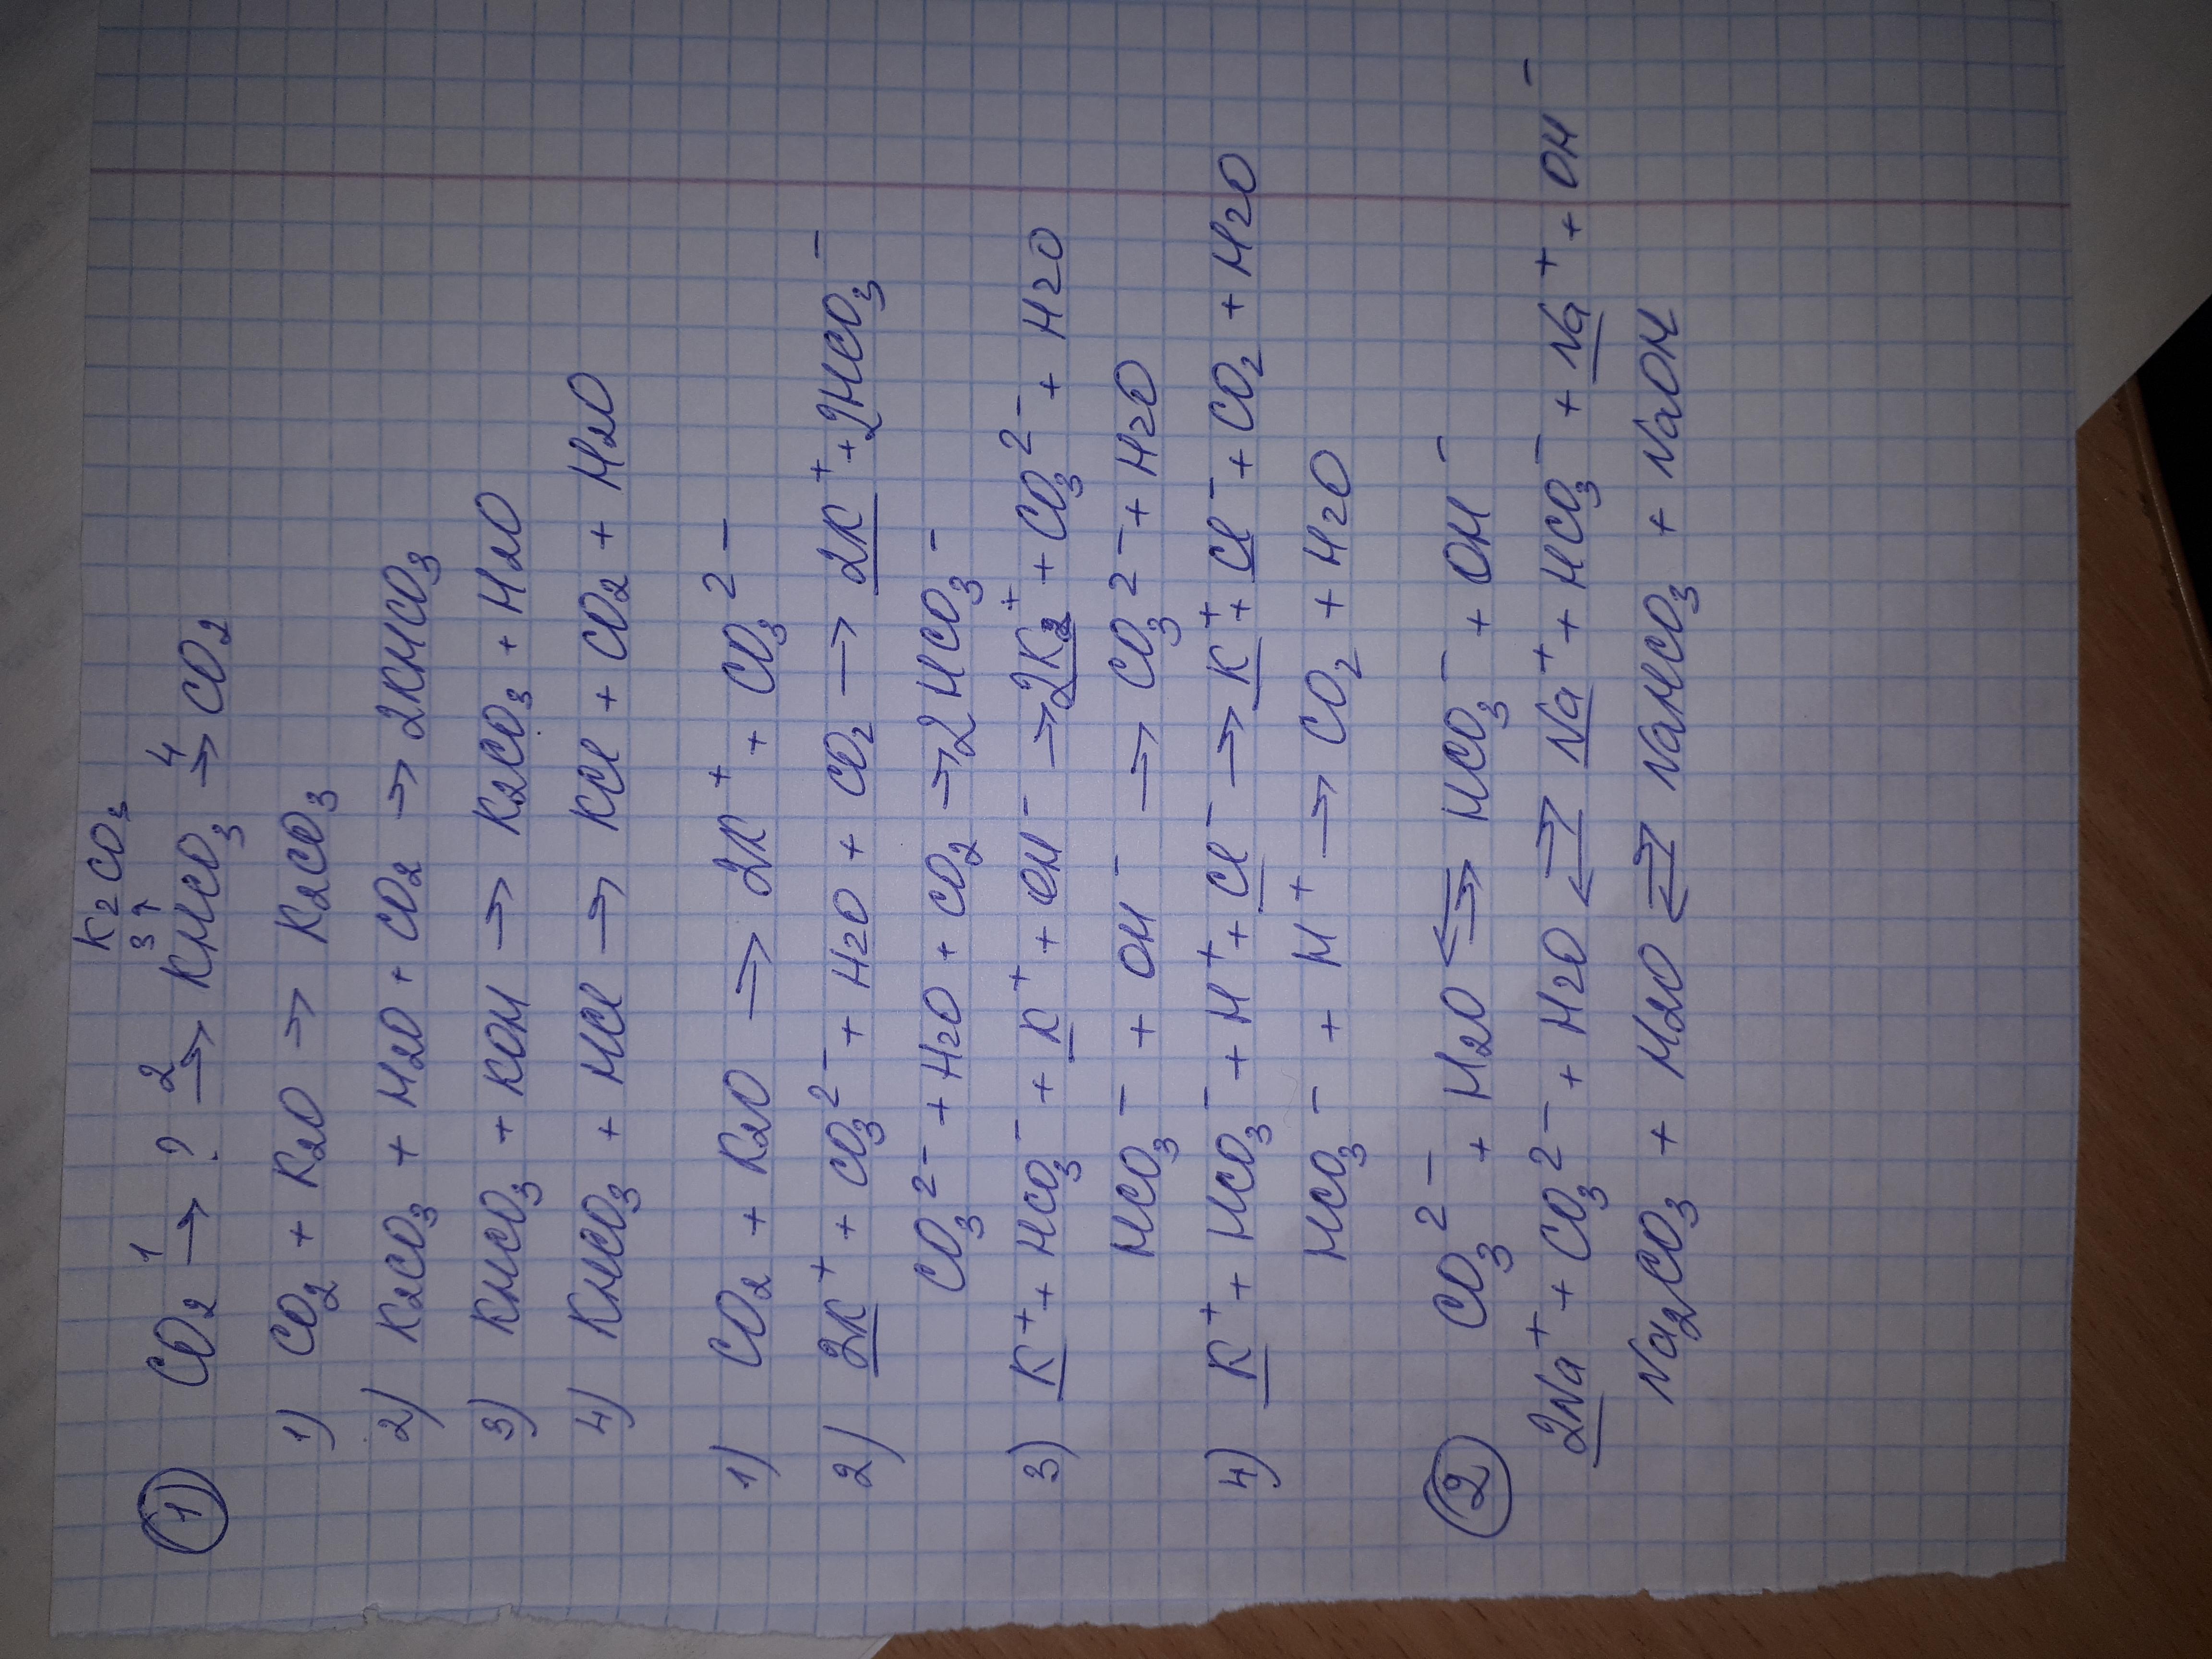 K2CO3
3↑
① CO2 →1 ? →2 KHCO3 →4 CO2
1) CO2 + K2O → K2CO3
2) K2CO3 + H2O + CO2 → 2KHCO3
3) KHCO3 + KOH → K2CO3 + H2O
4) KHCO3 + HCl → KCl + CO2 + H2O
1) CO2 + K2O → 2K⁺ + CO3²⁻
2) 2K⁺ + CO3²⁻ + H2O + CO2 → 2K⁺ + 2HCO3⁻
CO3²⁻ + H2O + CO2 → 2HCO3⁻
3) K⁺ + HCO3⁻ + K⁺ + OH⁻ → 2K2⁺ + CO3²⁻ + H2O
HCO3⁻ + OH⁻ → CO3²⁻ + H2O
4) K⁺ + HCO3⁻ + H⁺ + Cl⁻ → K⁺ + Cl⁻ + CO2 + H2O
HCO3⁻ + H⁺ → CO2 + H2O
② CO3²⁻ + H2O ⇄ HCO3⁻ + OH⁻
2Na⁺ + CO3²⁻ + H2O ⇄ Na⁺ + HCO3⁻ + Na⁺ + OH⁻
Na2CO3 + H2O ⇄ NaHCO3 + NaOH